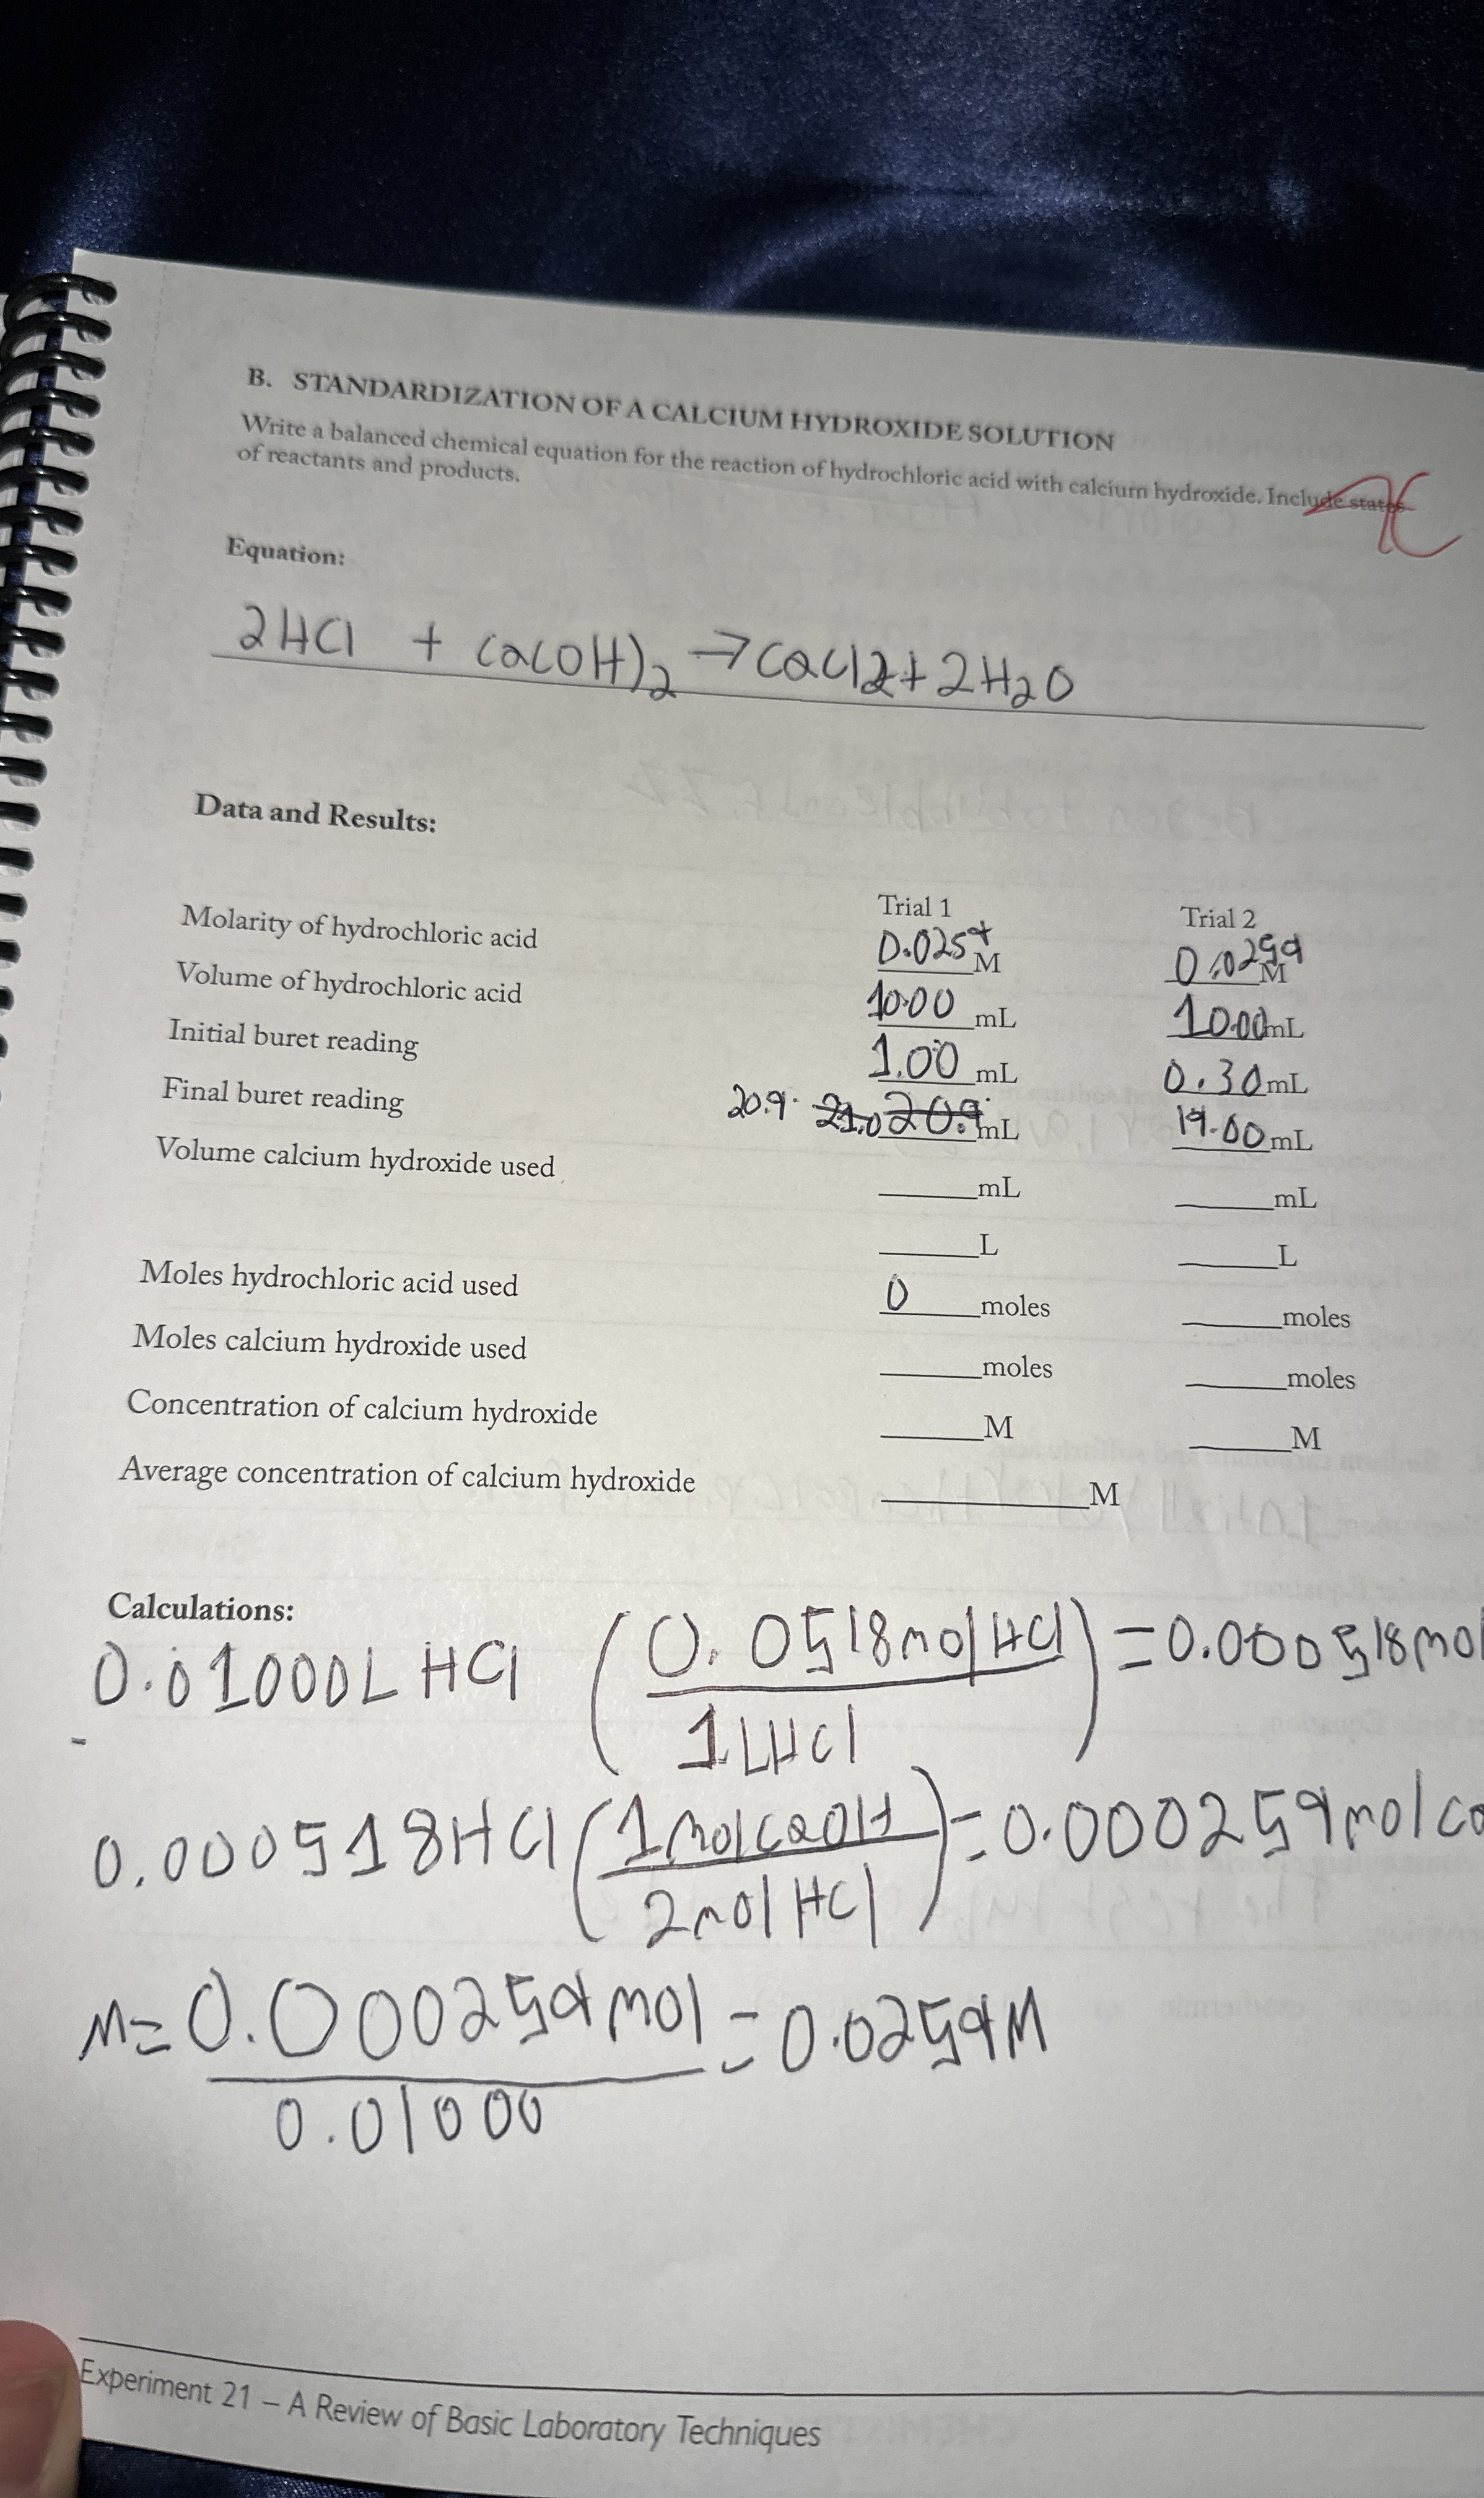 B. STANDARDIZATION OF A CALCIUM HYDROXIDE SOLUTION
Write a balanced chemical equation for the reaction of hydrochloric acid with calcium hydroxide. Include states
of reactants and products.
Equation:
2HCl + Ca(OH)2 → CaCl2 + 2H2O
Data and Results:
Trial 1 Trial 2
Molarity of hydrochloric acid 0.0259 M 0.0259 M
Volume of hydrochloric acid 10.00 mL 10.00 mL
Initial buret reading 1.00 mL 0.30 mL
Final buret reading 20.9 21.0 20.9 mL 19.00 mL
Volume calcium hydroxide used mL mL
L L
Moles hydrochloric acid used 0 moles moles
Moles calcium hydroxide used moles moles
Concentration of calcium hydroxide M M
Average concentration of calcium hydroxide M
Calculations:
0.01000L HCl (0.0518mol HCl / 1LHCl) = 0.000518mol
0.000518HCl (1molCaOH / 2mol HCl) = 0.000259molCa
M = 0.000259mol / 0.01000 = 0.0259M
Experiment 21 – A Review of Basic Laboratory Techniques